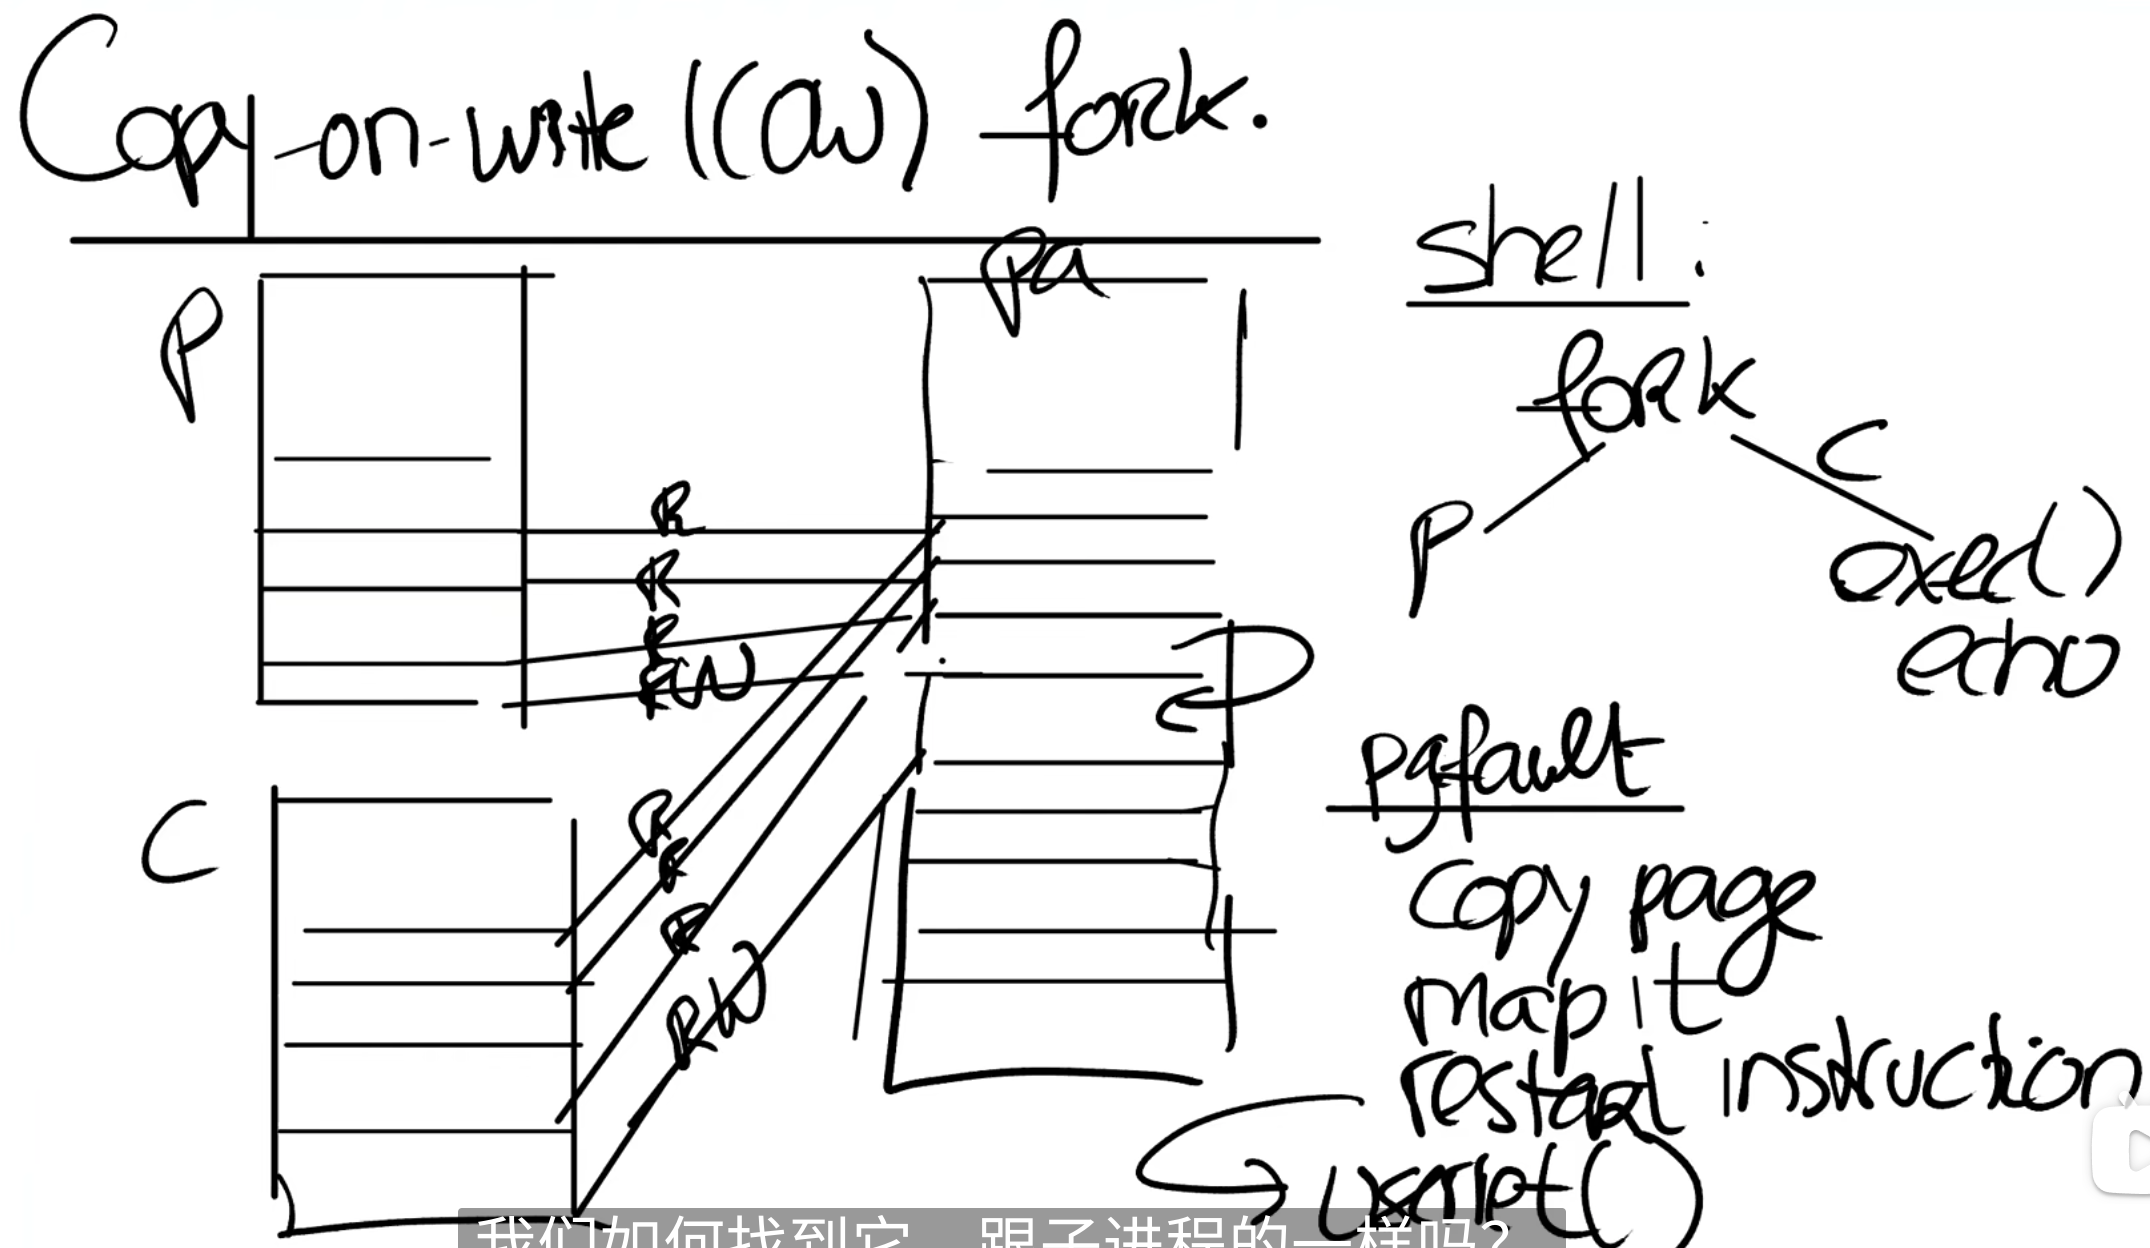 Copy-on-write (COW) fork.
pa
P
R
R
R
RW
C
R
R
R
RW
shell:
fork
P
C
exec()
echo
pgfault
copy page
map it
restart instruction
userret()
我们如何找到它 跟子进程的一样吗?